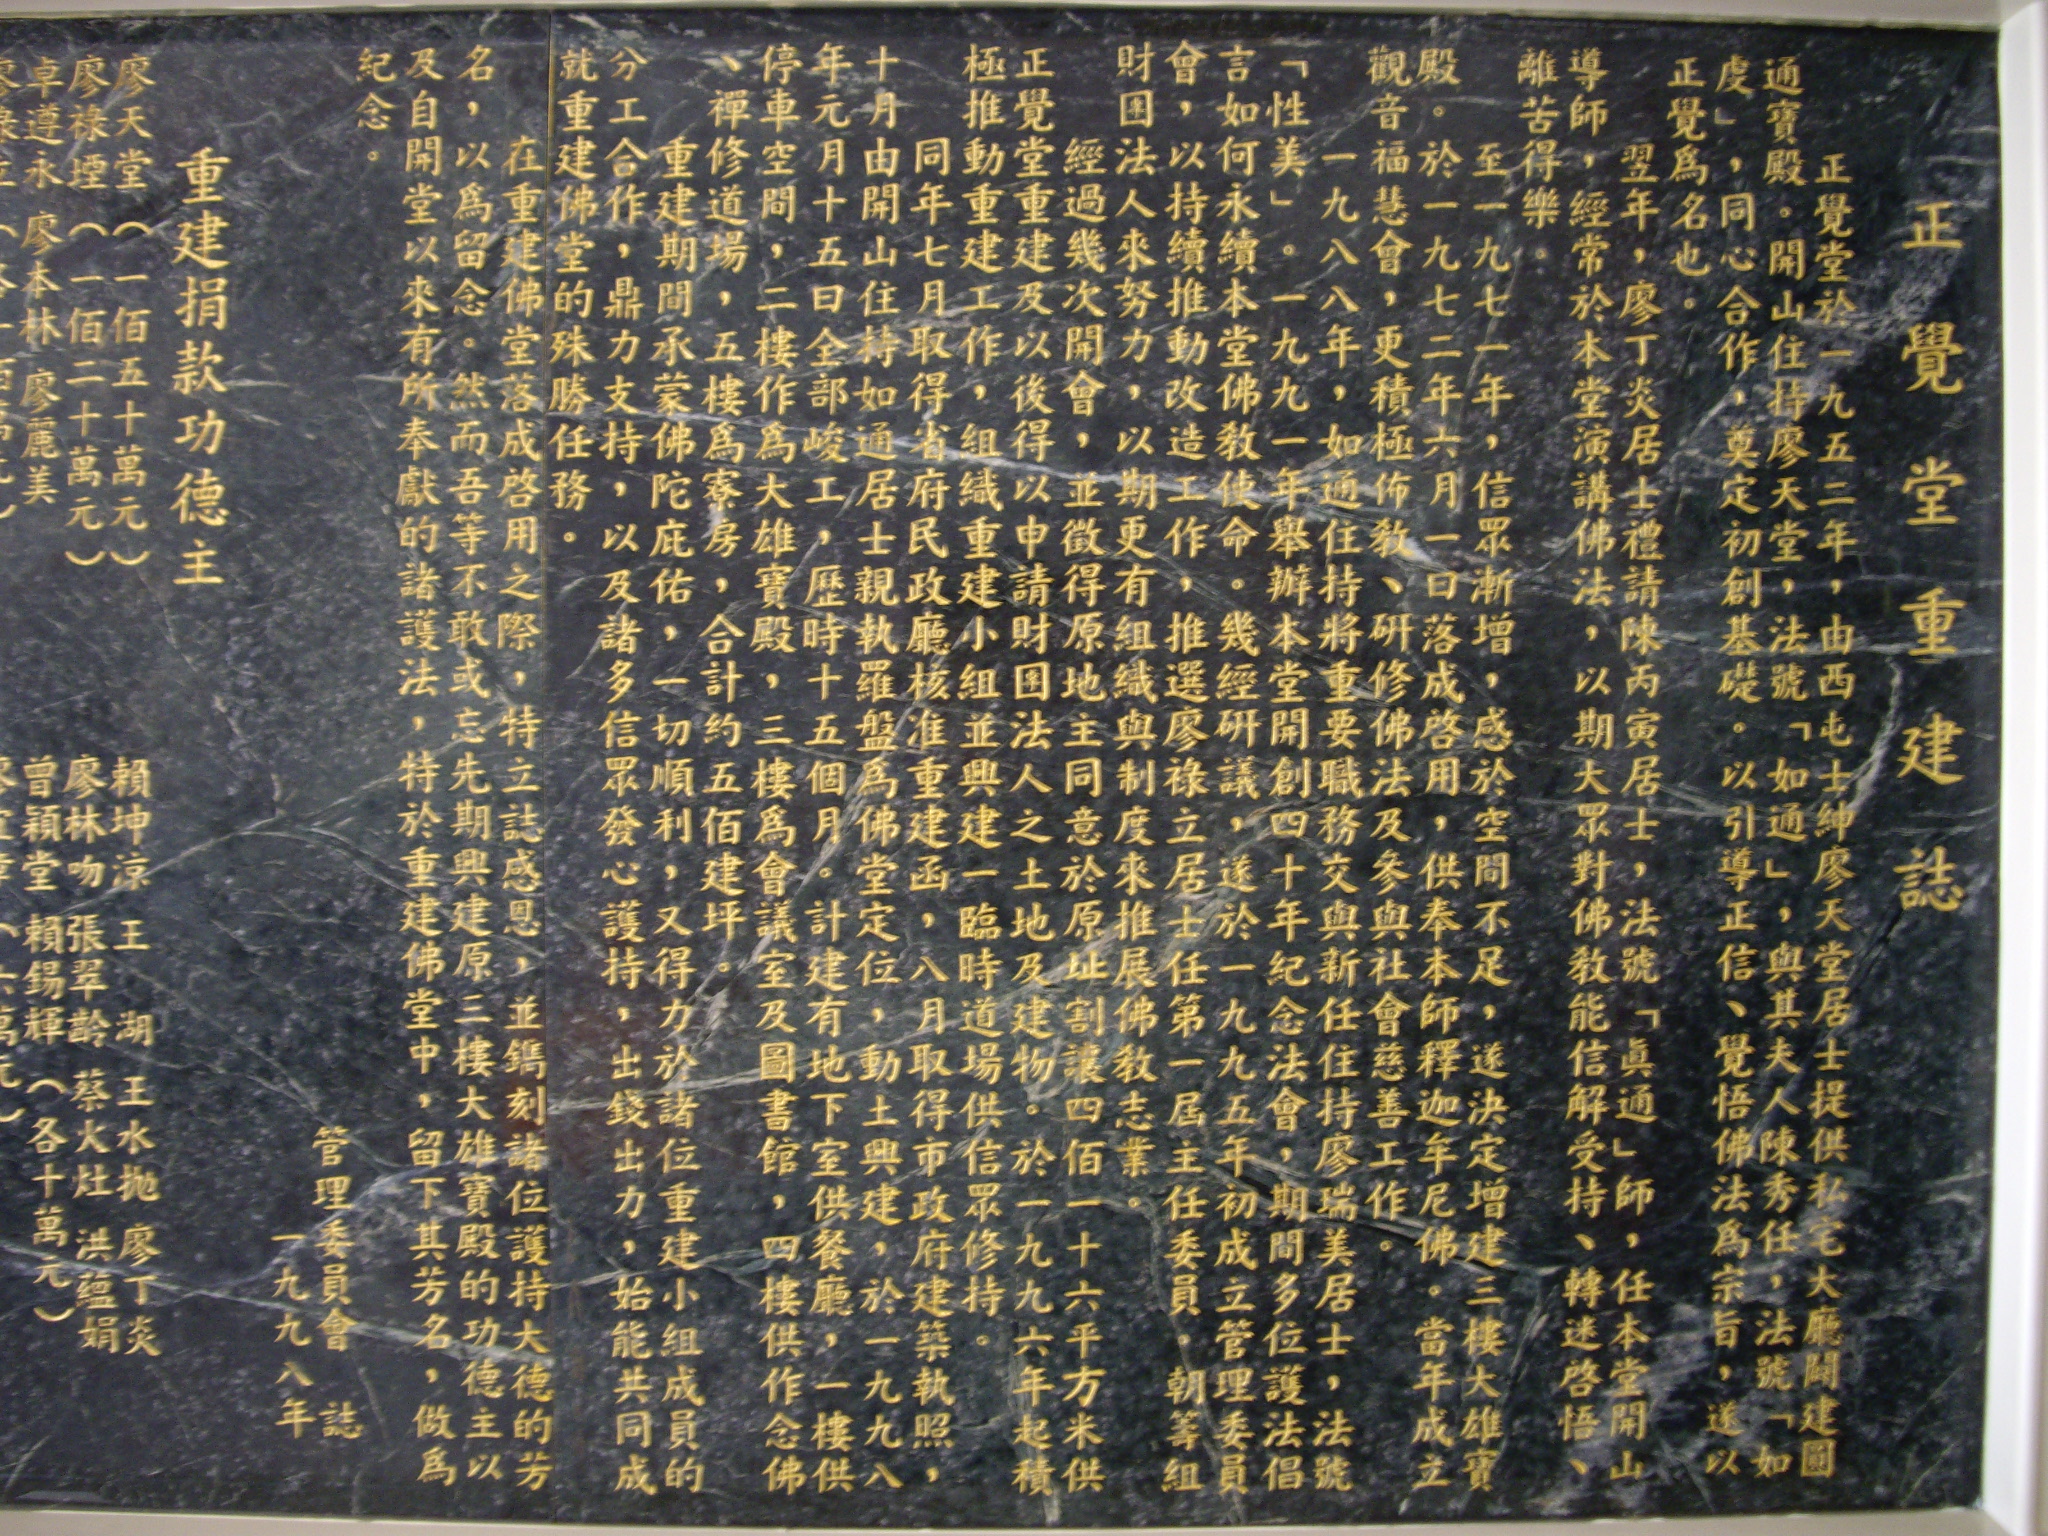 正覺堂重建誌
正覺堂於一九五二年，由西屯士紳廖天堂居士提供私宅大廳闢建圓
通寶殿。開山住持廖天堂，法號「如通」，與其夫人陳秀任，法號「如
虔」，同心合作，奠定初創基礎。以引導正信、覺悟佛法為宗旨，遂以
正覺為名也。
翌年，廖丁炎居士禮請陳丙寅居士，法號「眞通」師，任本堂開山
導師，經常於本堂演講佛法，以期大眾對佛教能信解受持、轉迷啓悟、
離苦得樂。
至一九七一年，信眾漸增，感於空間不足，遂決定增建三樓大雄寶
殿。於一九七二年六月一日落成啓用，供奉本師釋迦牟尼佛。當年成立
觀音福慧會，更積極佈教、研修佛法及參與社會慈善工作。
一九八八年，如通住持將重要職務交與新任住持廖瑞美居士，法號
「性美」。一九九一年舉辦本堂開創四十年紀念法會，期間多位護法倡
言如何永續本堂佛教使命。幾經研議，遂於一九九五年初成立管理委員
會，以持續推動改造工作，推選廖祿立居士任第一屆主任委員。朝籌組
財團法人來努力，以期更有組織與制度來推展佛教志業。
經過幾次開會，並徵得原地主同意於原址割讓四佰一十六平方米供
正覺堂重建及以後得以申請財団法人之土地及建物。於一九九六年起積
極推動重建工作，組織重建小組並興建一臨時道場供信眾修持。
同年七月取得省府民政廳核准重建函，八月取得市政府建築執照，
十月由開山住持如通居士親執羅盤為佛堂定位，動土興建，於一九九八
年元月十五日全部峻工，歷時十五個月。計建有地下室供餐廳，一樓供
停車空間，二樓作為大雄寶殿，三樓為會議室及圖書館，四樓供作念佛
、禪修道場，五樓為寮房，合計約五佰建坪。
重建期間承蒙佛陀庇佑，一切順利，又得力於諸位重建小組成員的
分工合作，鼎力支持，以及諸多信眾發心護持，出錢出力，始能共同成
就重建佛堂的殊勝任務。
在重建佛堂落成啓用之際，特立誌感恩，並鐫刻諸位護持大德的芳
名，以為留念。然而吾等不敢或忘先期興建原三樓大雄寶殿的功德主以
及自開堂以來有所奉獻的諸護法，特於重建佛堂中，留下其芳名，做為
紀念。
管理委員會 誌
一九九八年
重建捐款功德主
廖天堂（一佰五十萬元） 賴坤涼 王 湖 王水抛 廖丁炎
廖祿堙（一佰二十萬元） 廖林吻 張翠齡 蔡火灶 洪蘊娟
卓遵永 廖本林 廖麗美 曾穎堂 賴錫輝（各十萬元）